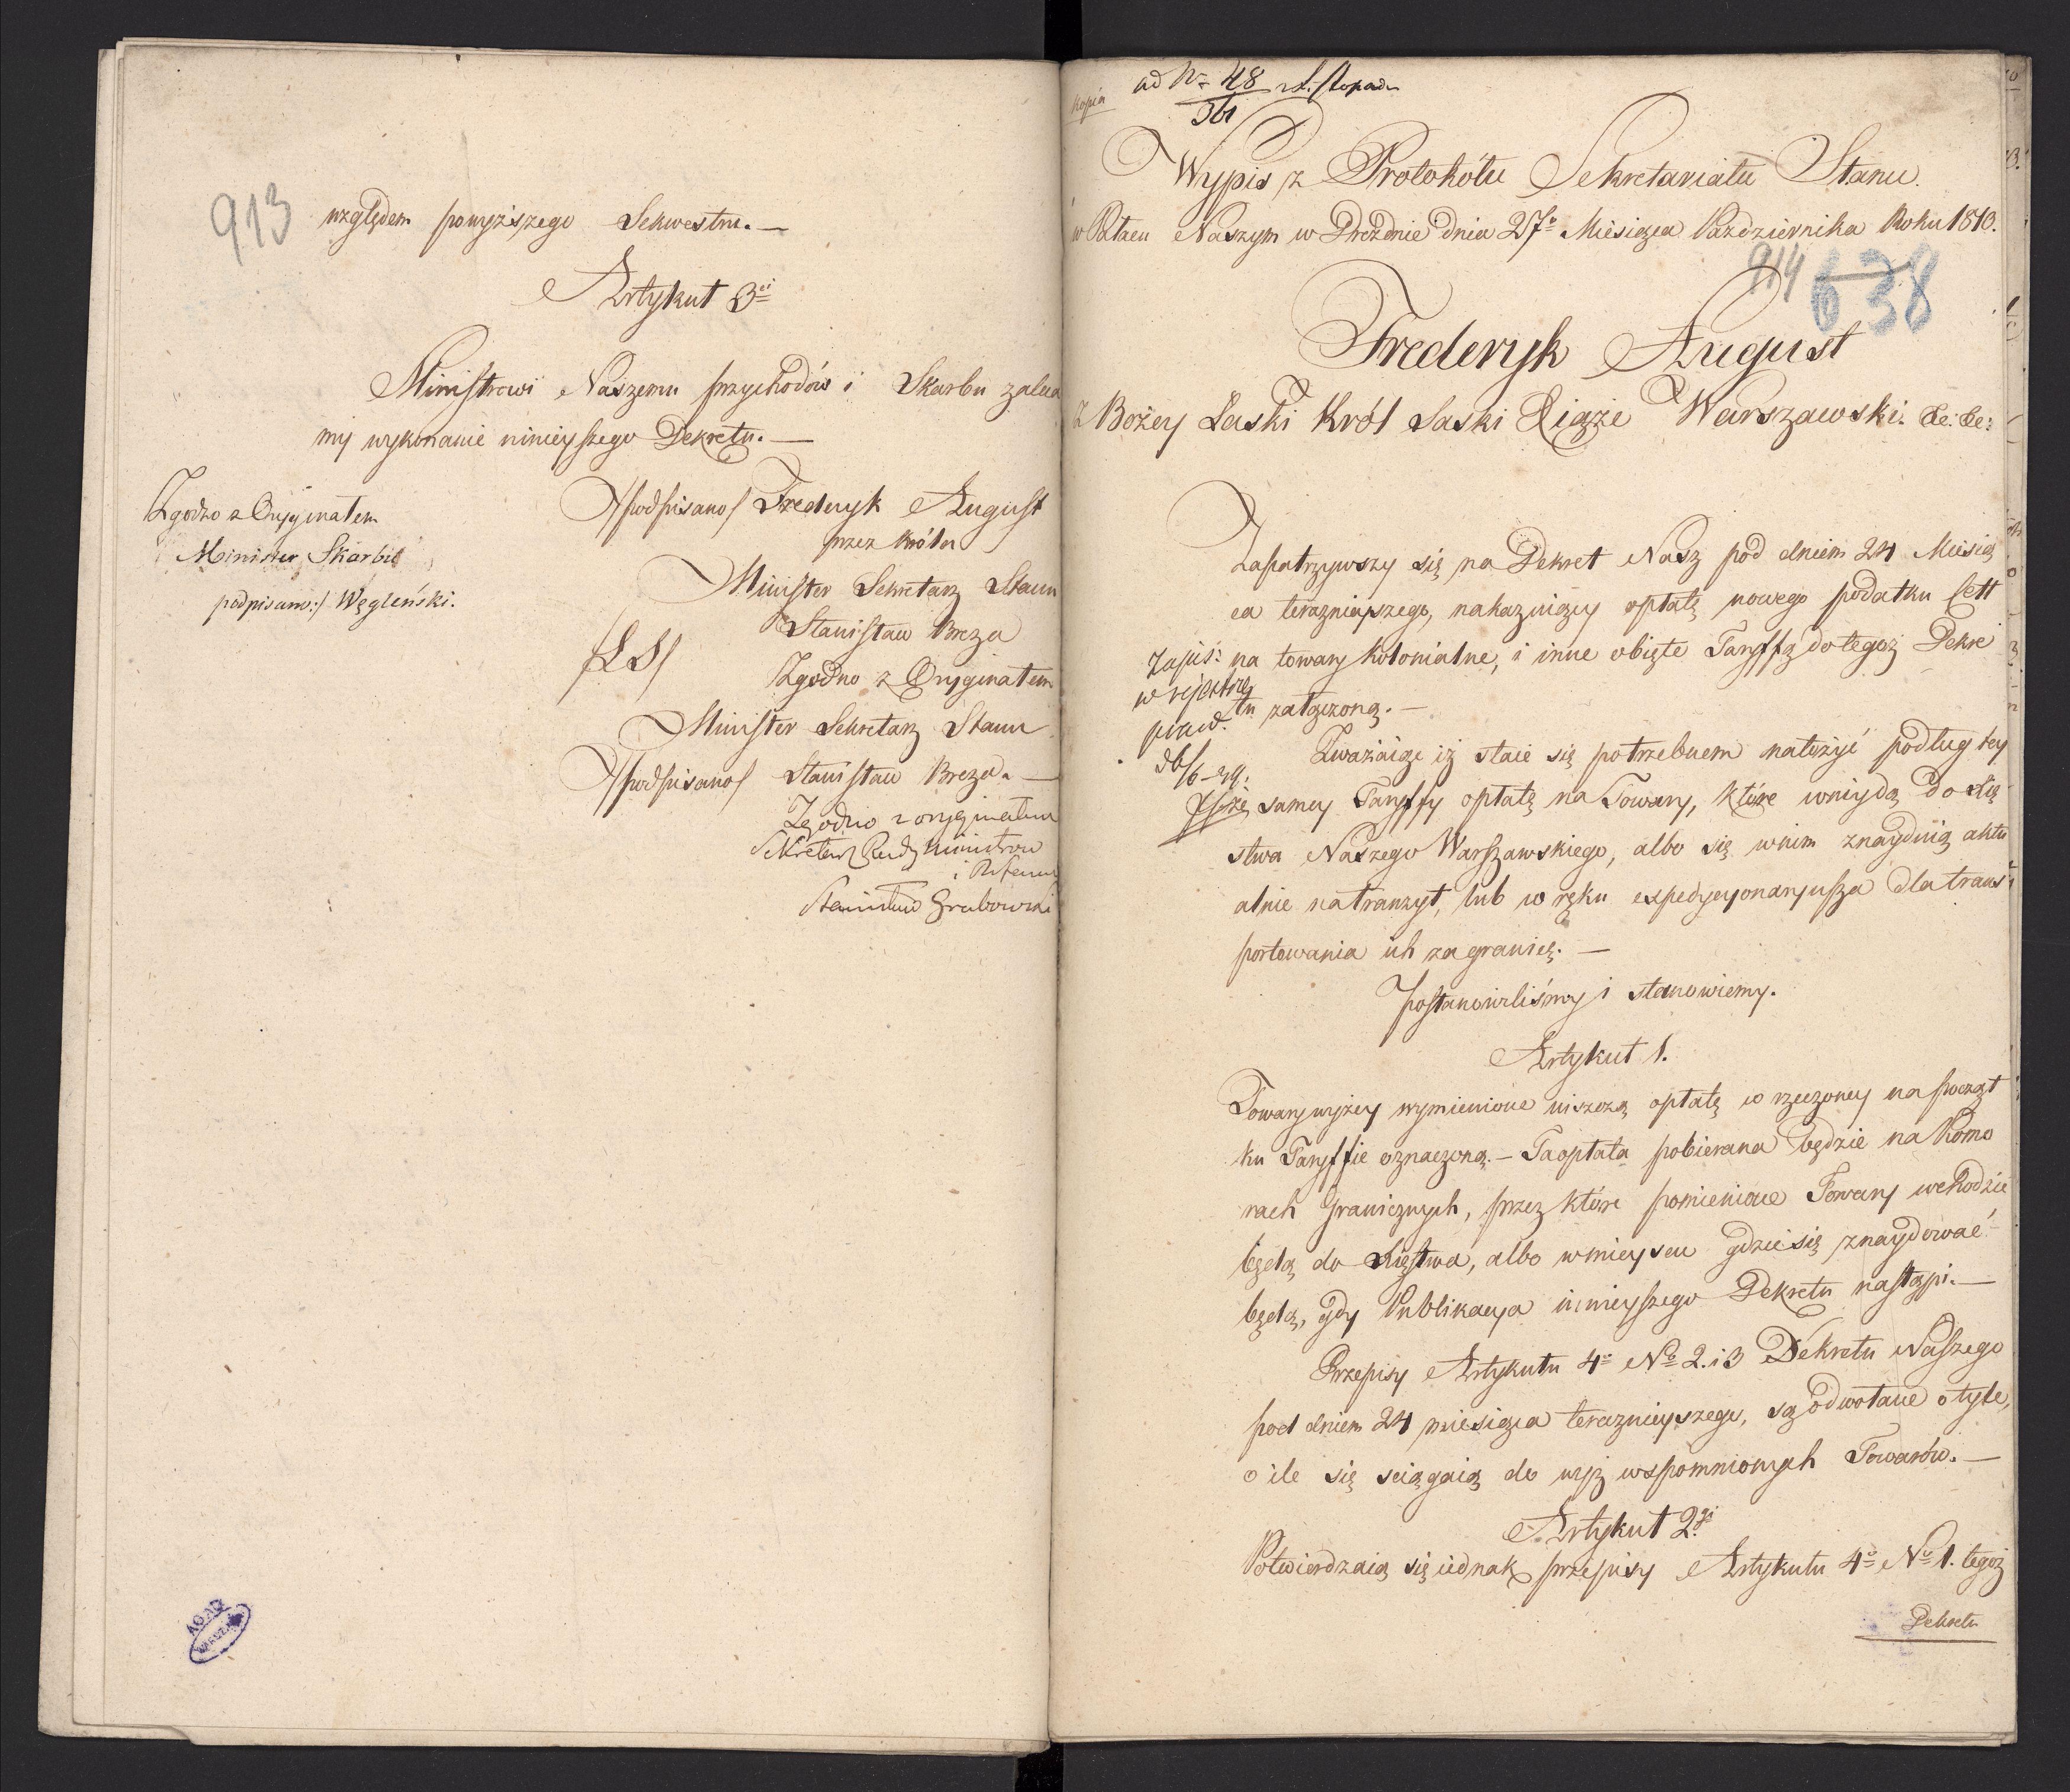 913
względem powyższego Sekwestru. —
Artykuł 3ci
Ministrowi Naszemu przychodów i Skarbu zaleca
my wykonanie ninieyszego Dekretu. —
/podpisano/ Frederyk August
przez Króla
Minister Sekretarz Stanu
Stanisław Breza
/LS/
Zgodno z Oryginałem
Minister Sekretarz Stanu
/podpisano/ Stanisław Breza. —
Zgodno z oryginałem
Sekretarz Rady Ministrow
i Referen
Stanisław Grabowski
Zgodno z Oryginałem
Minister Skarbu
podpisano:/ Węgleński.
Kopia
ad Nr 48 Listopada
Wypis z Protokółu Sekretariatu Stanu.
w Pałacu Naszym w Dreźnie dnia 27o Miesiąca Października Roku 1810.
914 638
Frederyk August
z Bożey Łaski Król Saski Xiąże Warszawski. &c: &c:
Zapatrzywszy się na Dekret Nasz pod dniem 24 Miesią
ca teraznieyszego, nakazuiący opłatę nowego podatku Cełł
na towary kolonialne, i inne obięte Taryffą do tegoż Dekre
tu załączoną. —
Zapis:
w rejestrze
prawd.
Zważaiąc iż staie się potrzebnem nałożyć podług tey
że samey Taryffy opłatę na Towary, które wniydą do Xię
stwa Naszego Warszawskiego, albo się w nim znayduią aktu
alnie na tranzyt, lub w ręku expedycyonaryusza dla trans
portowania ich za granicę. —
Postanowiliśmy i stanowiemy.
Artykuł 1.
Towary wyżey wymienione uiszczą opłatę w rzeczoney na począt
ku Taryffie oznaczoną. — Ta opłata pobierana będzie na Komo
rach Granicznych, przez które pomienione Towary wchodzić
będą do Xięstwa, albo w mieyscu gdzie się znaydować
będą, gdy Publikacya ninieyszego Dekretu nastąpi. —
Przepisy Artykułu 4o No 2. i 3 Dekretu Naszego
pod dniem 24 miesiąca teraznieyszego, są odwołane o tyle,
o ile się sciągaią do wyż wspomnionych Towarów. —
Artykuł 2gi
Potwierdzaią się iednak przepisy Artykułu 4o No 1. tegoż
Dekretu
AGAD